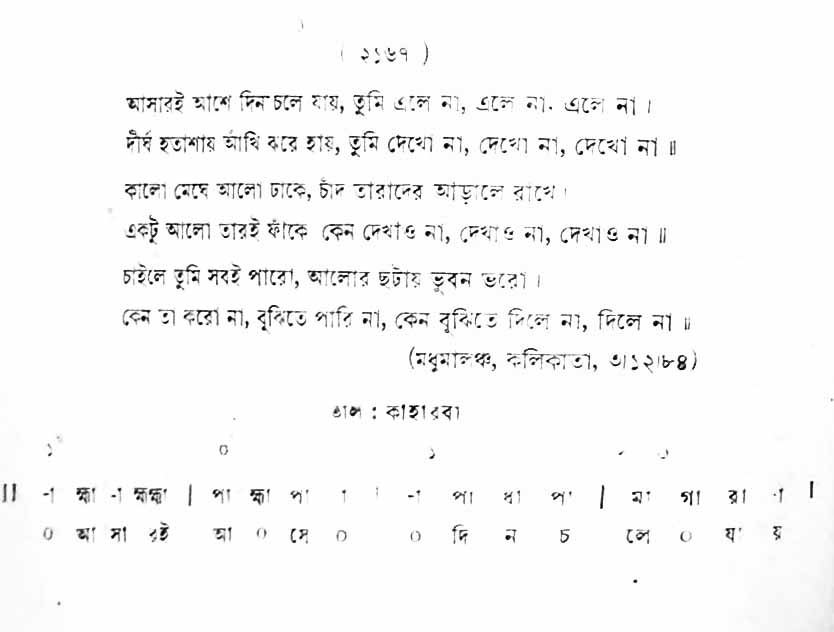 ( ২১৬৭ )
আসারই আশে দিন চলে যায়, তুমি এলে না, এলে না, এলে না ।
দীর্ঘ হতাশায় আঁখি ঝরে হায়, তুমি দেখো না, দেখো না, দেখো না ॥
কালো মেঘে আলো ঢাকে, চাঁদ তারাদের আড়ালে রাখে ।
একটু আলো তারই ফাঁকে কেন দেখাও না, দেখাও না, দেখাও না ॥
চাইলে তুমি সবই পারো, আলোর ছটায় ভুবন ভরো ।
কেন তা করো না, বুঝিতে পারি না, কেন বুঝিতে দিলে না, দিলে না ॥
(মধুমালঞ্চ, কলিকাতা, ৩।১২।৮৪)
তাল : কাহারবা
১ ০ ১
॥ -া হ্মা -া হ্মহ্মা | পা হ্মা পা া । -া পা ধা পা | মা গা রা -া ।
০ আ সা রই আ ০ সে ০ ০ দি ন চ লে ০ যা য়